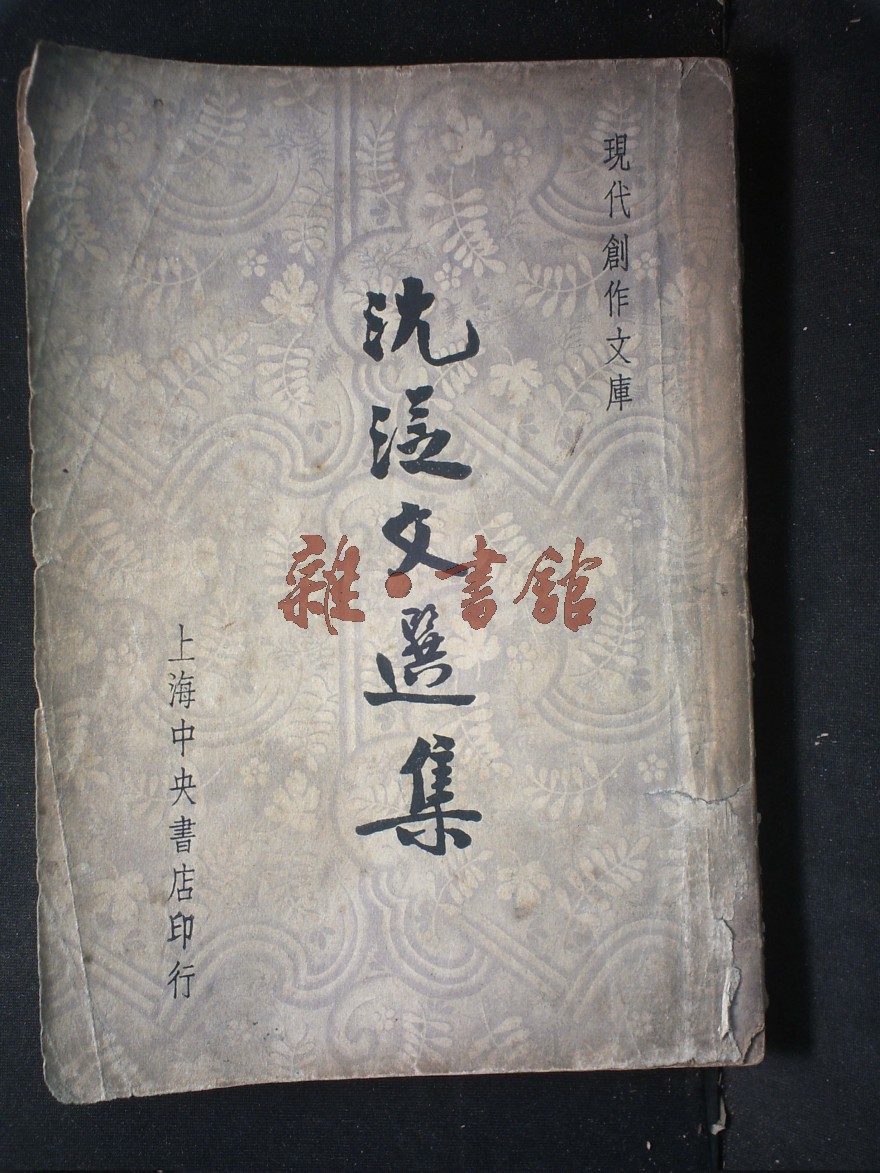 現代創作文庫
沈從文選集
上海中央書店印行
雜·書館